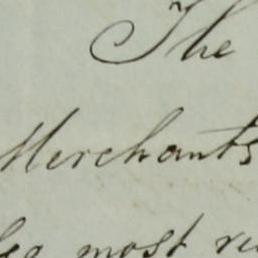 The
Merchants
most